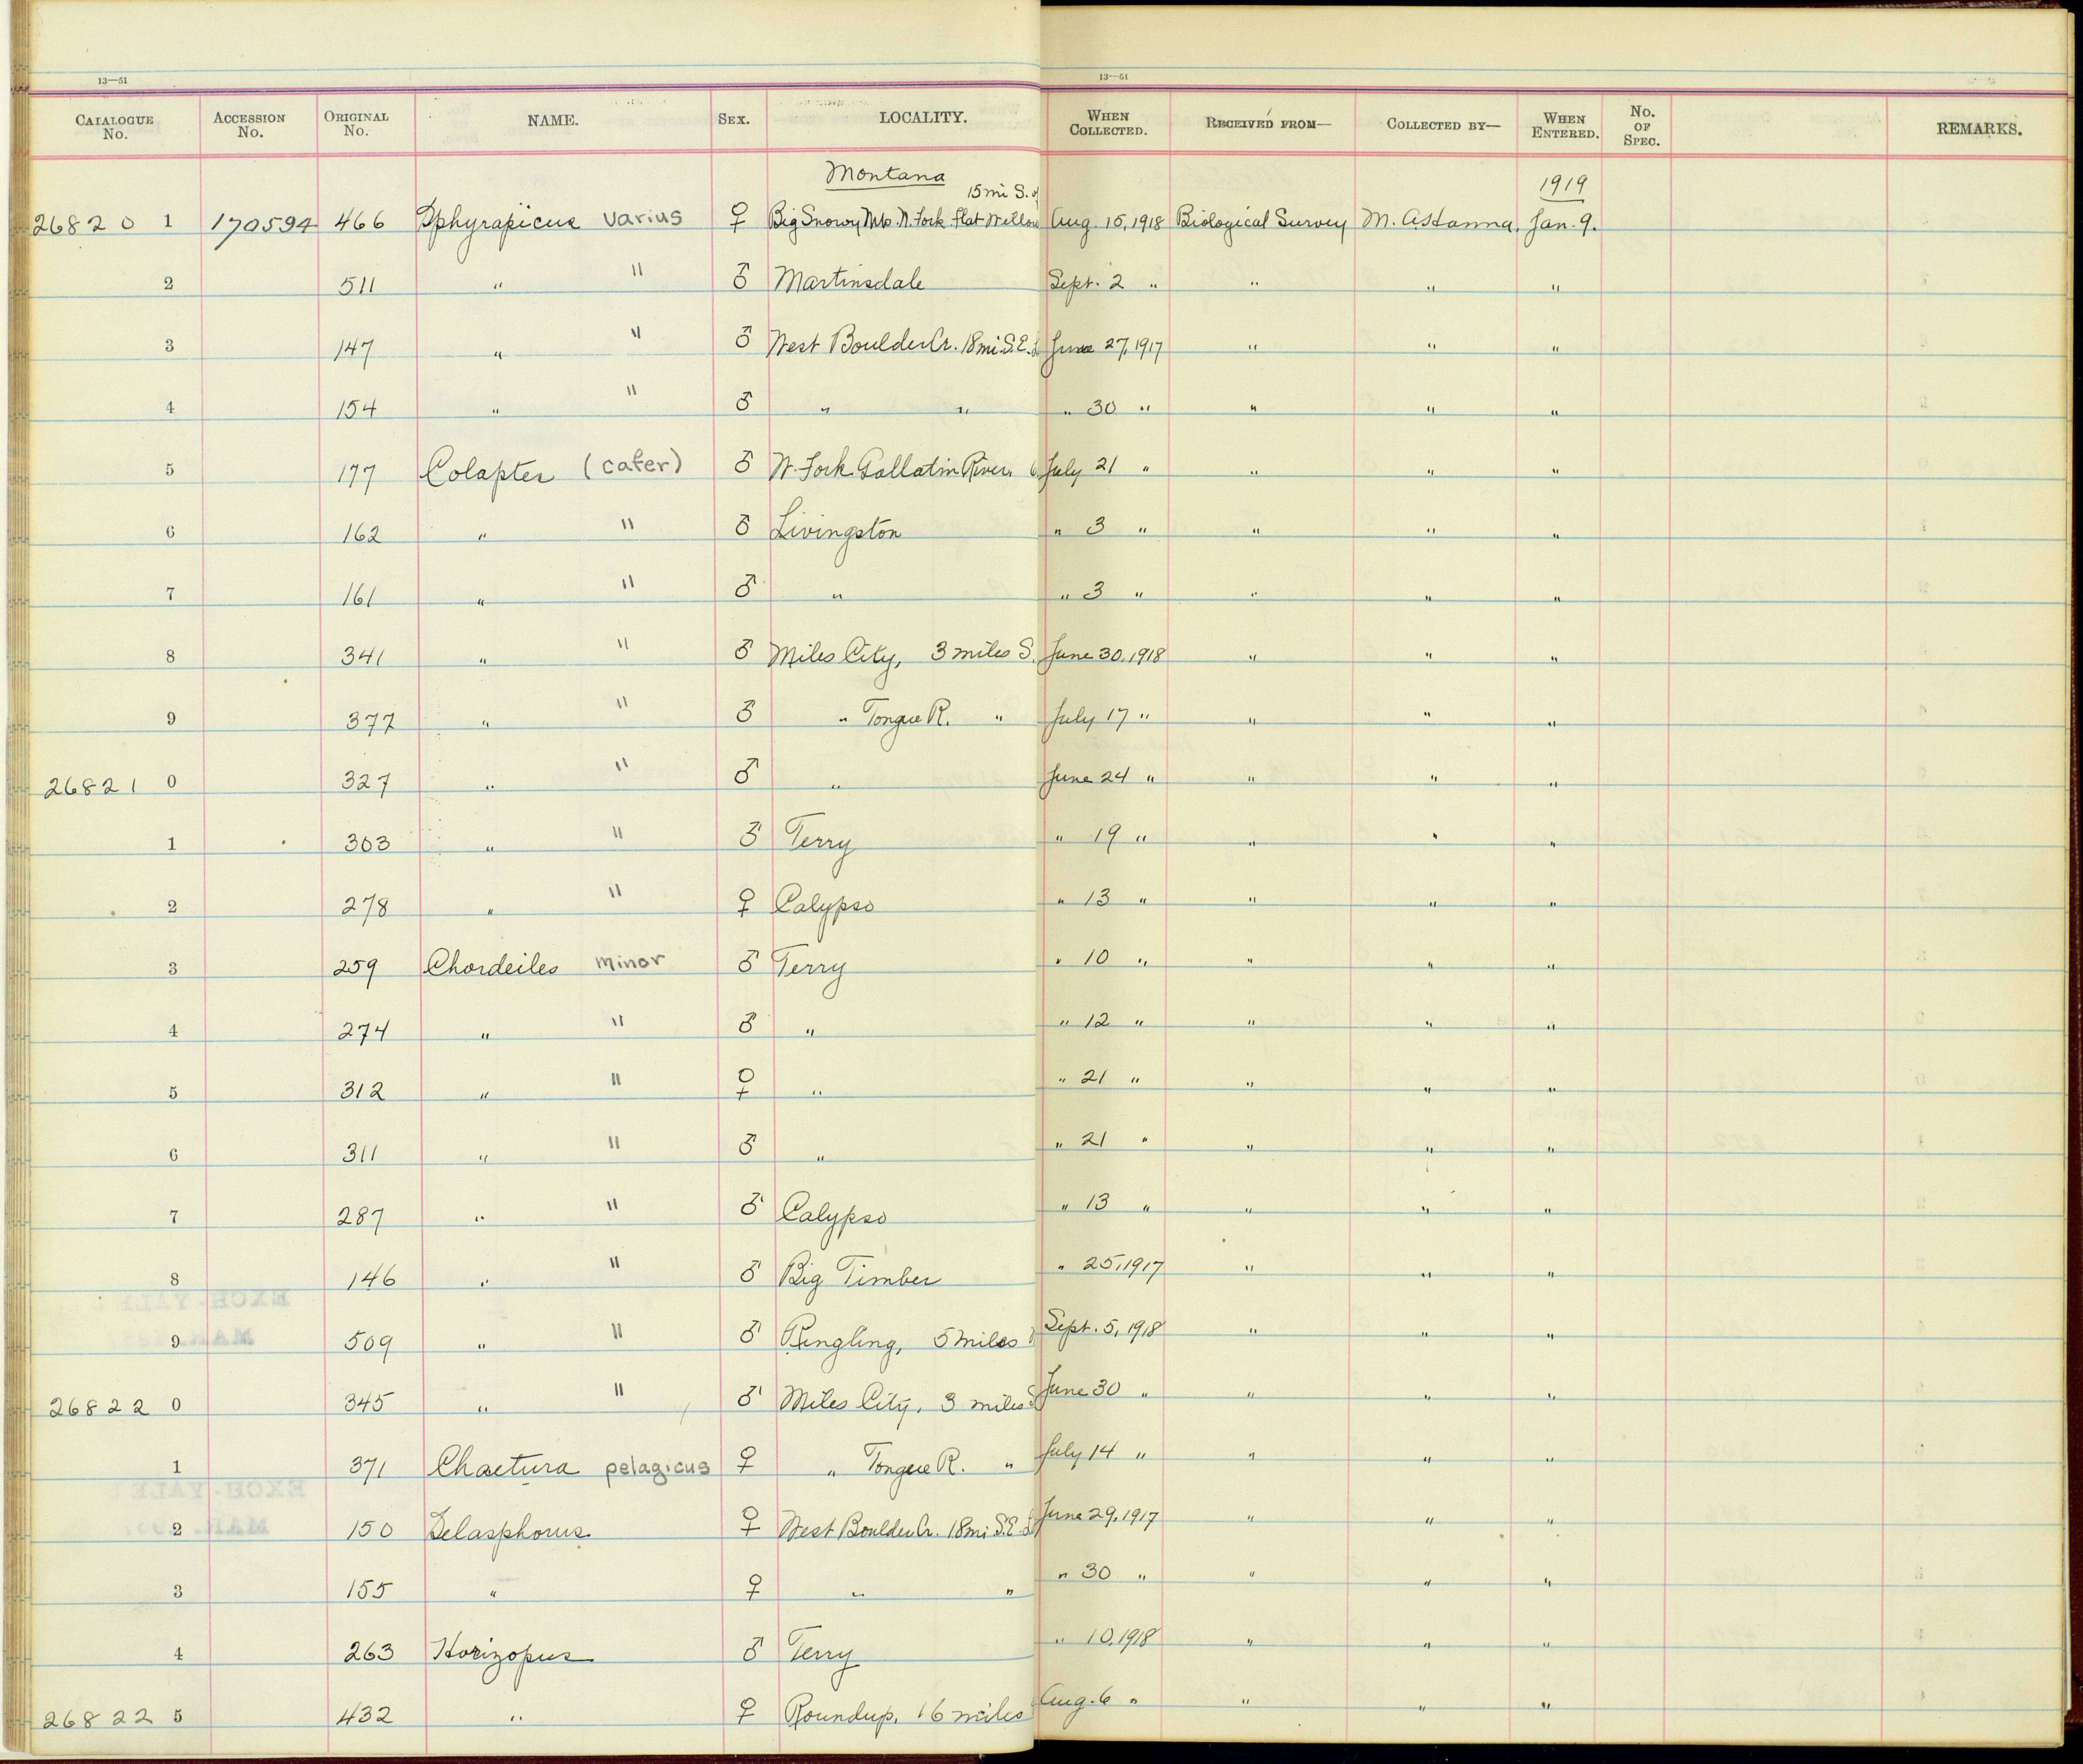 13—51
13—51
CATALOGUE No. ACCESSION No. ORIGINAL No. NAME. SEX. LOCALITY. WHEN COLLECTED. RECEIVED FROM— COLLECTED BY— WHEN ENTERED. No. OF SPEC. REMARKS.
Montana 1919
15 mi S. of
26820 1 170594 466 Sphyrapicus varius ♀ Big Snowy Mts. N. Fork Flat Willow Aug. 15, 1918 Biological Survey M. A. Hanna, Jan. 9.
2 511 " " ♂ Martinsdale Sept. 2 " " " "
3 147 " " ♂ West Boulder Cr. 18 mi. S.E. June 27, 1917 " " "
4 154 " " ♂ " " " 30 " " " "
5 177 Colapter (cafer) ♂ W. Fork Gallatin River, July 21 " " " "
6 162 " " ♂ Livingston " 3 " " " "
7 161 " " ♂ " " 3 " " " "
8 341 " " ♂ Miles City, 3 miles S. June 30, 1918 " " "
9 377 " " ♂ " Tongue R. " July 17 " " " "
26821 0 327 " " ♂ " June 24 " " " "
1 303 " " ♂ Terry " 19 " " " "
2 278 " " ♀ Calypso " 13 " " " "
3 259 Chordeiles minor ♂ Terry " 10 " " " "
4 274 " " ♂ " " 12 " " " "
5 312 " " ♀ " " 21 " " " "
6 311 " " ♂ " " 21 " " " "
7 287 " " ♂ Calypso " 13 " " " "
8 146 " " ♂ Big Timber " 25, 1917 " " "
9 509 " " ♂ Ringling, 5 miles Sept. 5, 1918 " " "
26822 0 345 " " ♂ Miles City, 3 miles S June 30 " " " "
1 371 Chaetura pelagicus ♀ " Tongue R. " July 14 " " " "
2 150 Selasphorus ♀ West Boulder Cr. 18 mi S.E. June 29, 1917 " " "
3 155 " ♀ " " " 30 " " " "
4 263 Horizopus ♂ Terry " 10, 1918 " " "
26822 5 432 " ♀ Roundup, 16 miles Aug. 6 " " " "